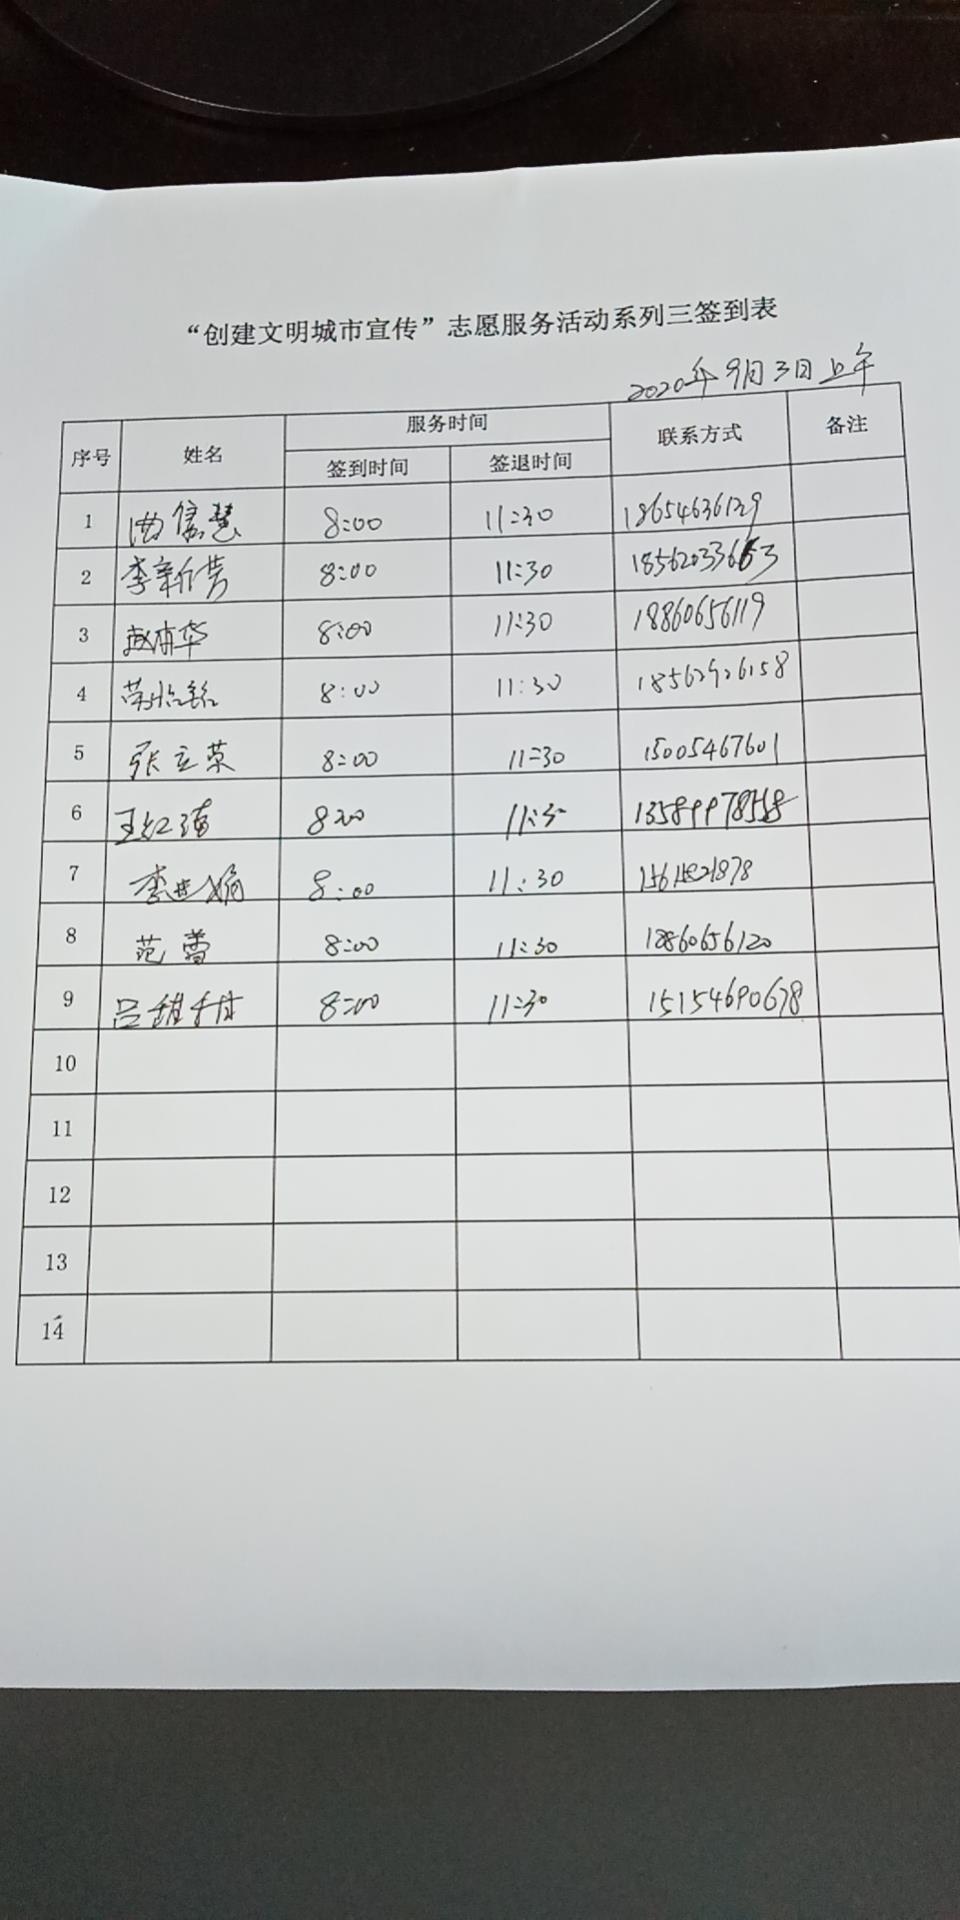 “创建文明城市宣传”志愿服务活动系列三签到表
2020年9月3日上午
序号 姓名 服务时间 联系方式 备注
签到时间 签退时间
1 曲信慧 8:00 11:30 18654636129
2 李新芳 8:00 11:30
3 赵甫华 8:00 11:30 18860656119
4 8:00 11:30 18562926158
5 张立荣 8:00 11:30 15005467601
6 王红 8:00 11:3
7 李 娟 8:00 11:30
8 范蕾 8:00 11:30 18860656120
9 吕甜 8:00 11:30 15154690678
10
11
12
13
14